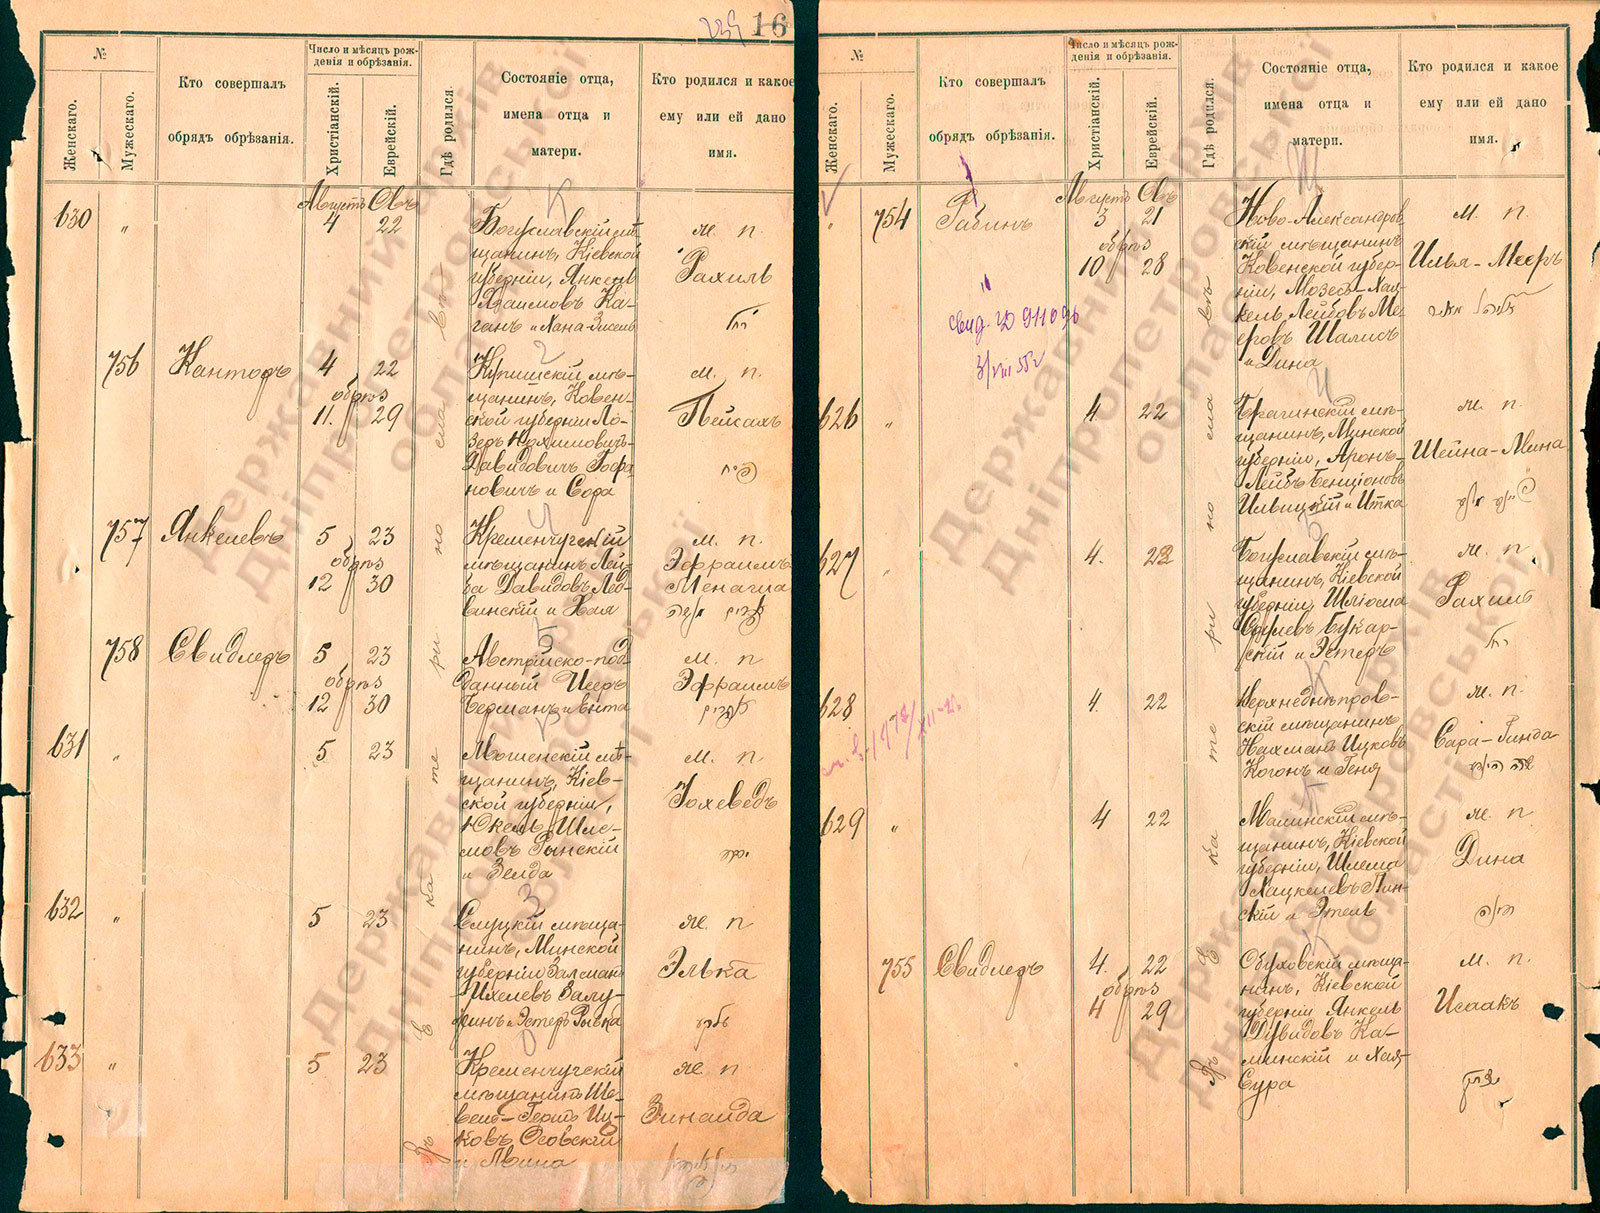 16
№
Женскаго.
Мужескаго.
Кто совершалъ
обрядъ обрѣзанія.
Число и мѣсяцъ рож-
денія и обрѣзанія.
Христіанскій.
Еврейскій.
Гдѣ родился.
Состояніе отца,
имена отца и
матери.
Кто родился и какое
ему или ей дано
имя.
Августъ Овъ
630 " 4 22
Богуславскій мѣ-
щанинъ, Кіевской
губерніи, Янкель
Хаимовъ Ка-
ганъ и Хана-Зисель
ж. п.
Рахиль
רחל
756 Канторъ 4 22
обрѣз
11. 29
Купишскій мѣ-
щанинъ, Ковен-
ской губерніи Ло-
зеръ Нохимовичъ-
Давидовичъ
новичъ и Сора
м. п.
Пейсахъ
פסח
757 Янкелевъ 5 23
обрѣз
12 30
Кременчугскій
мѣщанинъ Лей-
ба Давидовъ Лед-
винскій и Хая
м. п.
Эфраимъ-
Менаша
אפרים מנשה
758 Свидлеръ 5 23
обрѣз
12 30
Австрійско-под-
данный Исеръ
Берманъ и Ента
м. п
Эфраимъ
אפרים
631 " 5 23
Мошенскій мѣ-
щанинъ, Кіев-
ской губерніи,
Юкель Шле-
мовъ Рынскій
и Зелда
ж. п.
Іохеведъ
632 " 5 23
Слуцкій мѣща-
нинъ, Минской
губерніи Залман
Ихелевъ Залу-
и Эстеръ Рывка
ж. п
Элька
עלקע
633 " 5 23
Кременчугскій
мѣщанинъ Ше-
Иц-
ковъ Осовскій
и Двина
ж. п
Зинаида
въ городѣ Екатеринославѣ
№
Женскаго.
Мужескаго.
Кто совершалъ
обрядъ обрѣзанія.
Число и мѣсяцъ рож-
денія и обрѣзанія.
Христіанскій.
Еврейскій.
Гдѣ родился.
Состояніе отца,
имена отца и
матери.
Кто родился и какое
ему или ей дано
имя.
Августъ Овъ
" 754 Рабинъ 3 21
обрѣз
10 28
Ново-Александров
скій мѣщанинъ
Ковенской губер-
ніи, Мозесъ-Хая-
кель Лейбовъ Ме-
еровъ Шалисъ
и Дина
м. п.
Илья-Мееръ
626 " 4 22
Брагинскій мѣ-
щанинъ, Минской
губерніи, Аронъ-
Лейбъ Бенціоновъ
Ильвицкій и Итка
ж. п.
Шейна-Мина
שיינע מינע
627 " 4. 22
Богуславскій мѣ-
щанинъ, Кіевской
губерніи, Шліома
Срулевъ Букар-
скій и Эстеръ
ж. п
Рахиль
רחל
628 4. 22
Верхнеднѣпров-
скій мѣщанинъ
Нахманъ Ицковъ
Когонъ и Геня
ж. п.
Сара-Гинда
629 " 4 22
Малинскій мѣ-
щанинъ, Кіевской
губерніи, Шлема
Хацкелевъ Пин-
скій и Этель
ж. п
Дина
דינה
755 Свидлеръ 4. 22
обрѣз
4 29
Обуховскій мѣща-
нинъ, Кіевской
губерніи Янкель
Дувидовъ Ка-
минскій и Хая-
Сура
м. п.
Исаакъ
יצחק
Державний архів
Дніпропетровської
області